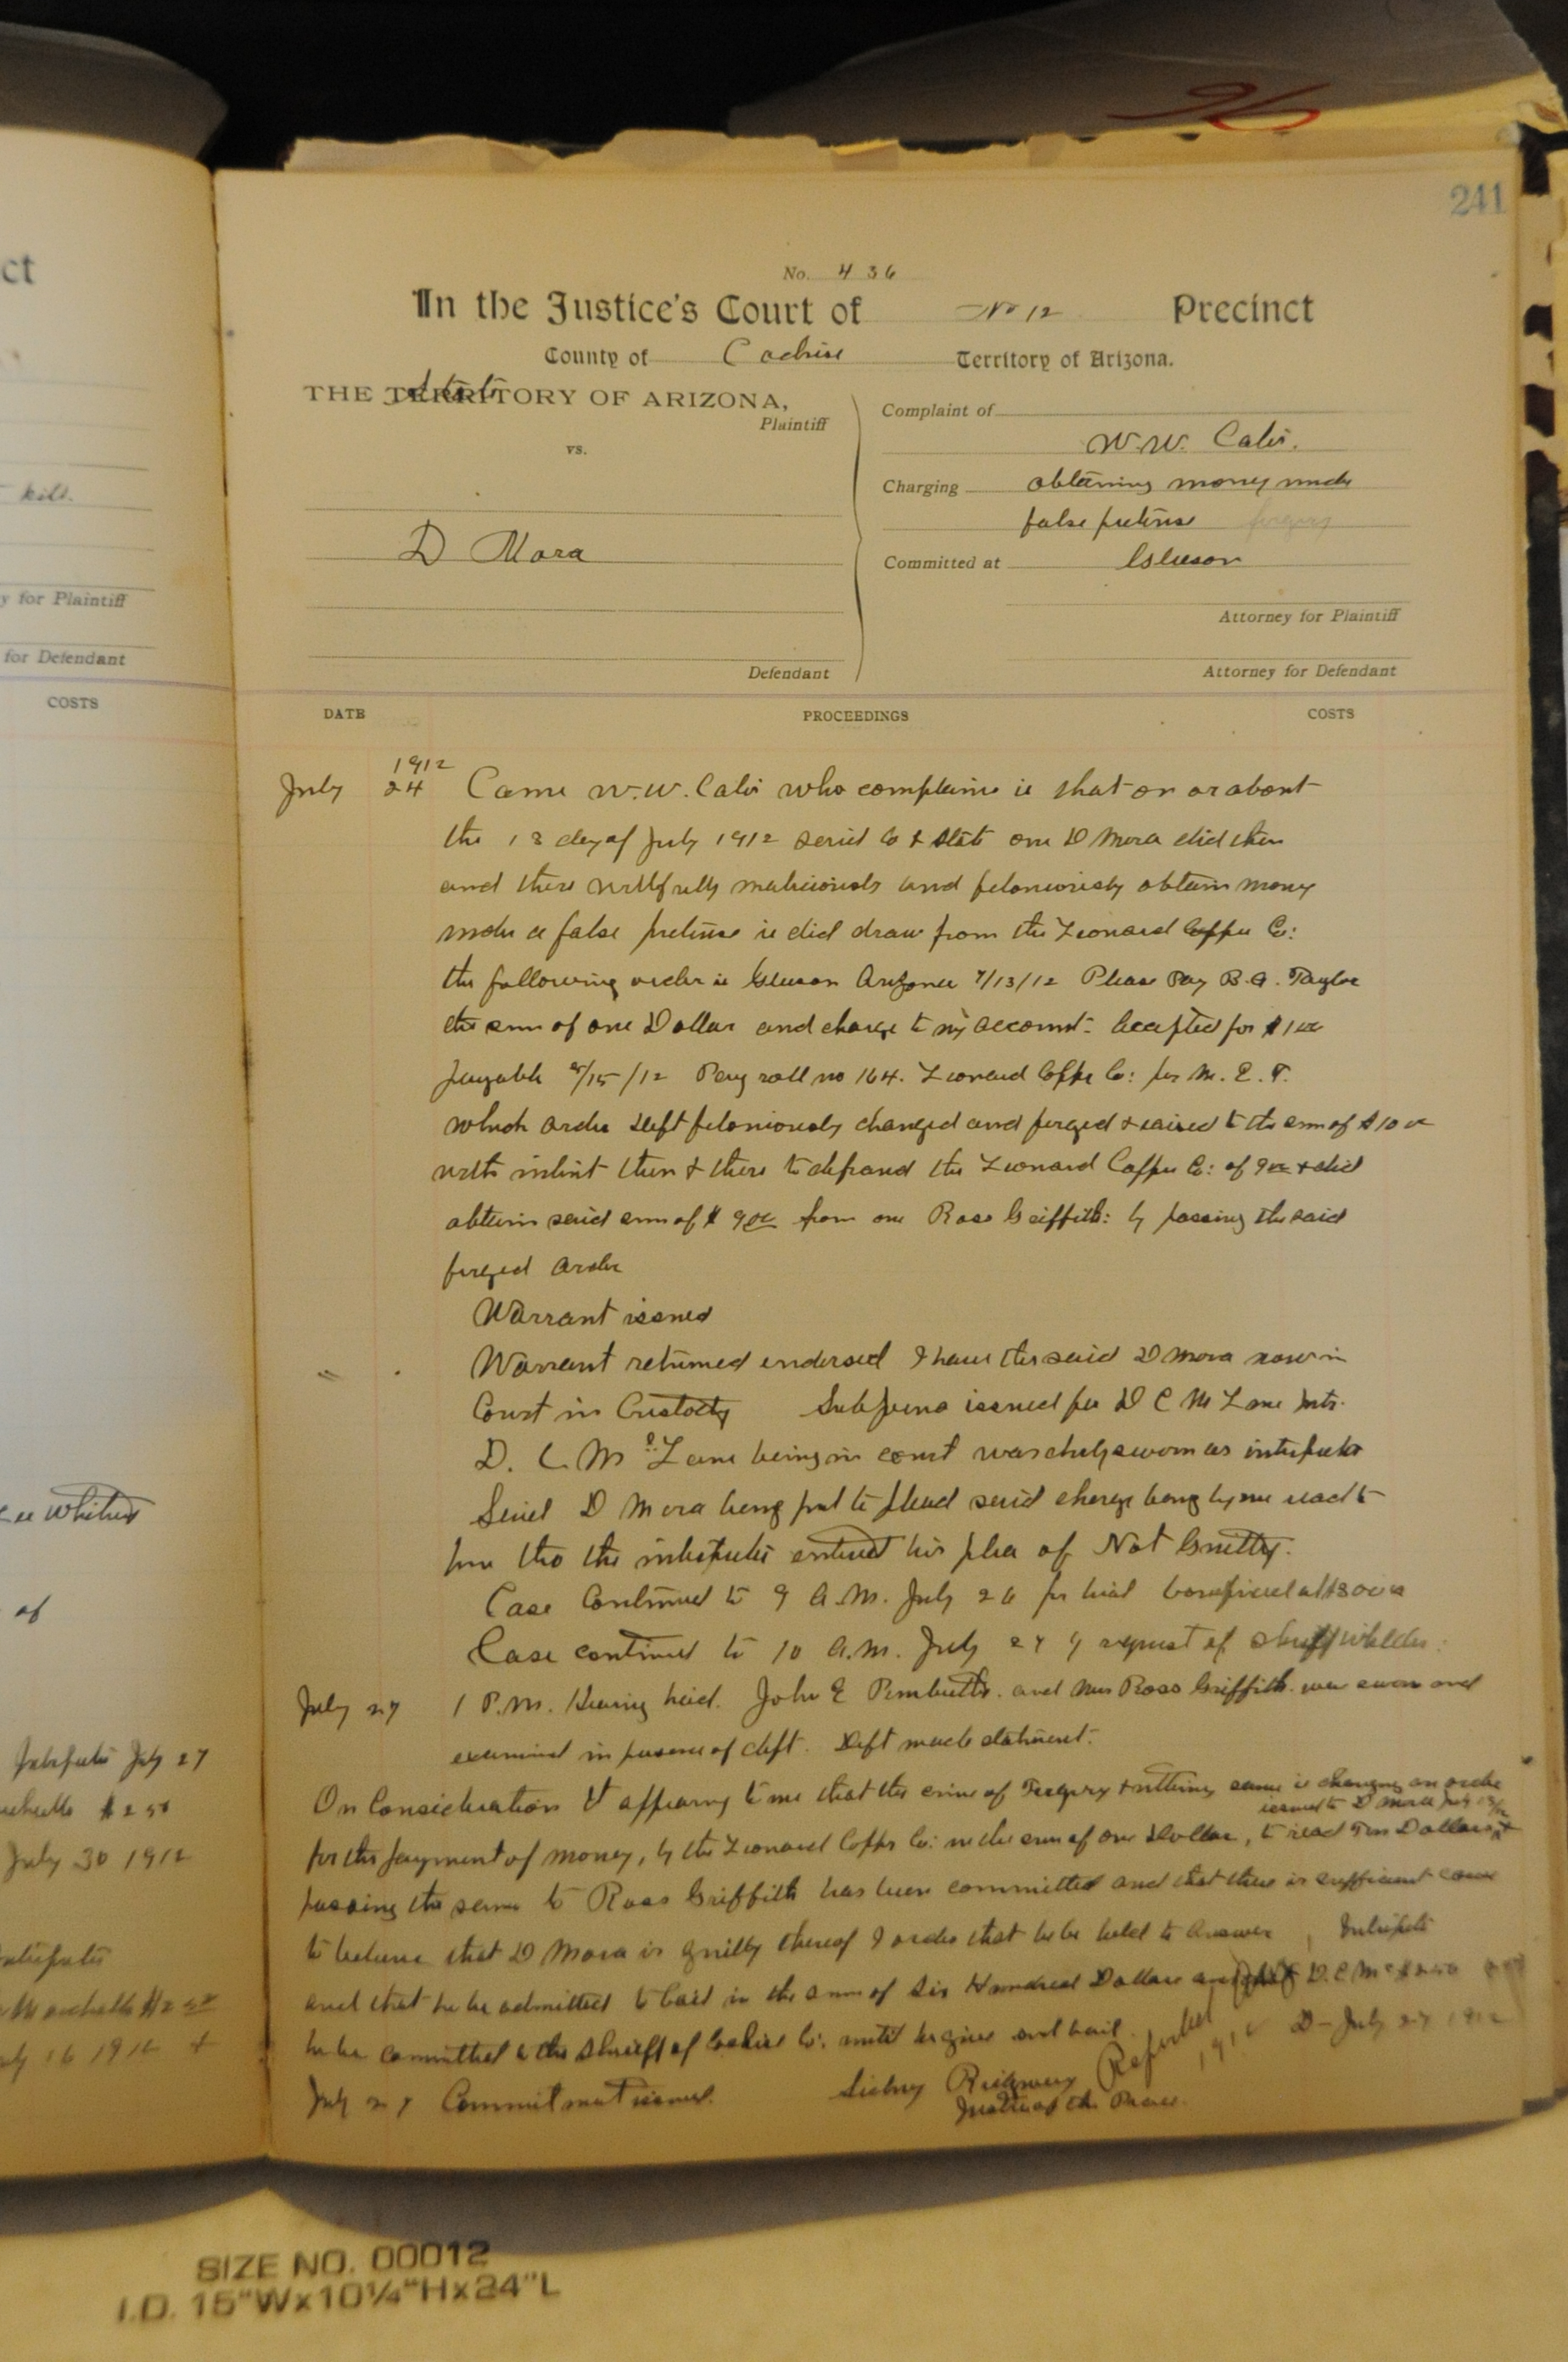 96
241
ct
kild.
y for Plaintiff
for Defendant
COSTS
ee Whitner
of
July 27
$2 50
July 30 1912
$2 50
16 1912 +
No. 436
In the Justice's Court of No 12 Precinct
County of Cochise Territory of Arizona.
THE TERRITORY OF ARIZONA,
State
Plaintiff
vs.
D Mora
Defendant
Complaint of
W.W. Cates.
Charging obtaining money under
false pretense forgery
Committed at Gleeson
Attorney for Plaintiff
Attorney for Defendant
DATE PROCEEDINGS COSTS
1912
July 24 Came W.W. Cates who complains ie that on or about
the 13 day of July 1912 said Co & State one D Mora did then
and there willfully maliciously and feloniously obtain money
under a false pretense ie did draw from the Leonard Copper Co:
the following order ie Gleeson Arizona 7/13/12 Please Pay B.A. Taylor
the sum of one Dollar and charge to my account. Accepted for $1 00
payable 8/15/12 Pay roll no 164. Leonard Copper Co: per M. E. T.
which order deft feloniously changed and forged & raised to the sum of $10 00
with intent then & there to defraud the Leonard Copper Co: of 9 00 & did
obtain said sum of $ 9 00 from one Ross Griffith: by passing the said
forged order
Warrant issued
Warrant returned endorsed I have the said D Mora now in
Court in Custody Subpoena issued for D C M Lane Intr.
D. C. M Lane being in court was duly sworn as interpreter
Said D Mora being put to plead said charge being by me read to
him thro the interpreter entered his plea of Not Guilty.
Case Continued to 9 A.M. July 26 for trial
Case continued to 10 A.M. July 27 by request of Sheriff Wheeler:
July 27 1 P.M. Hearing held. John E Pembutts. and Mrs Ross Griffith were sworn and
examined in presence of deft. Deft made statement.
On Consideration it appearing to me that the crime of Forgery & uttering same ie changing an order
issued to D Mora July 13/12
for the payment of money, by the Leonard Copper Co: in the sum of one Dollar, to read Ten Dollars &
passing the same to Ross Griffith has been committed and that there is sufficient cause
to believe that D Mora is guilty thereof I order that he be held to answer
Interpreter
and that he be admitted to bail in the sum of Six Hundred Dollars and that D.C. Mc $2 50
he be committed to the Sheriff of Cochise Co: until he give such bail.
Reported 1912 D - July 27 1912
July 27 Commitment issued. Sidney Ridgway
Justice of the Peace.
SIZE NO. 00012
I.D. 15"Wx10¼"Hx24"L